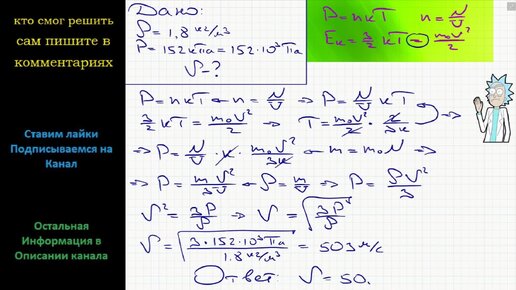 кто смог решить
сам пишите в
комментариях
Ставим лайки
Подписываемся на
Канал
Остальная
Информация в
Описании канала
Дано:
ρ = 1.8 кг/м³
P = 152 кПа = 152·10³ Па
V - ?
P = nkT    n = N/V
Eк = 3/2 kT = m₀V²/2
P = nkT ← n = N/V ⇒ P = N/V kT
3/2 kT = m₀V²/2 ⇒ T = m₀V²/2 · 2/3k ⇒
⇒ P = N/V · k · m₀V²/3k ← m = m₀N ⇒
⇒ P = m V²/3V ← ρ = m/V ⇒ P = ρV²/3
V² = 3P/ρ ⇒ V = √(3P/ρ)
V = √(3·152·10³ Па / 1.8 кг/м³) = 503 м/с
Ответ: V = 50.